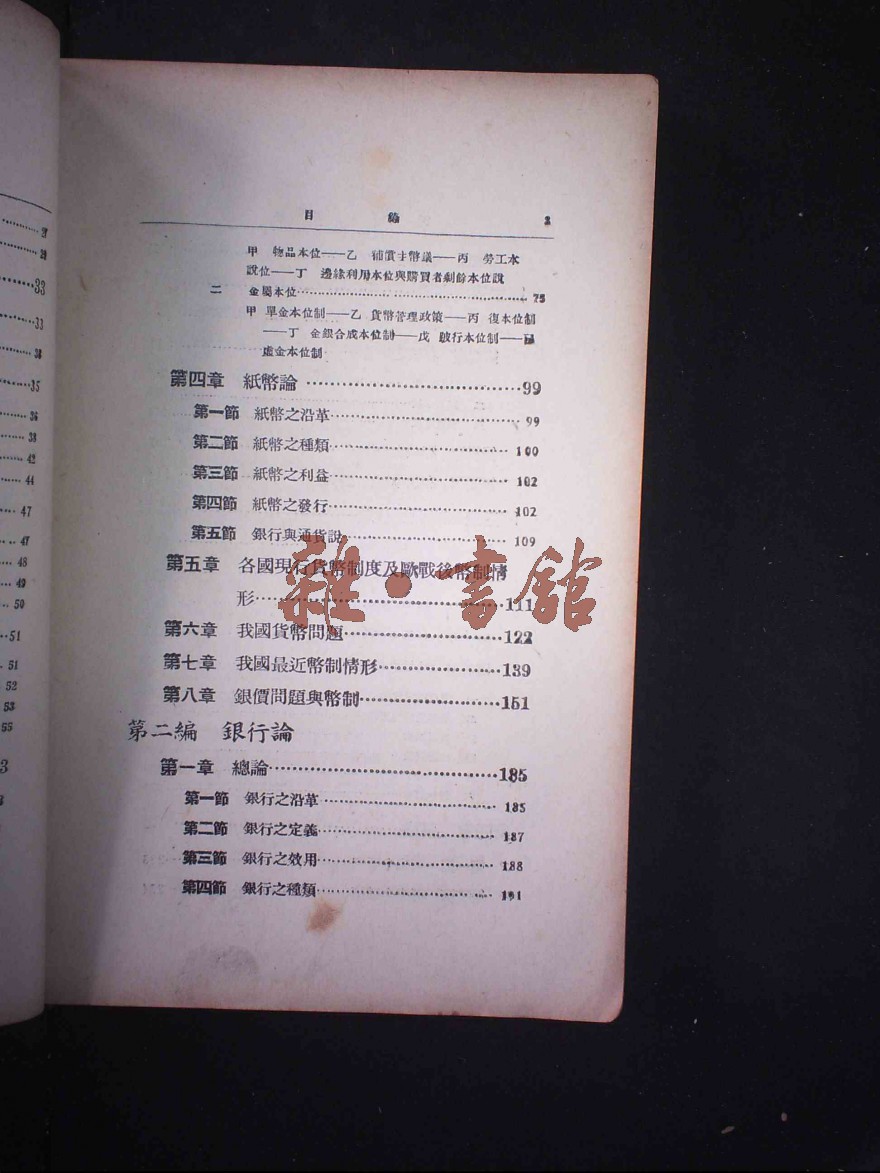 27
29
33
33
34
35
36
38
42
44
47
47
48
49
50
51
51
52
53
55
3
目 錄 3
甲 物品本位——乙 補償本幣議——丙 勞工本
說位——丁 邊緣利用本位與購買者剩餘本位說
二 金屬本位……………………………75
甲 單金本位制——乙 貨幣管理政策——丙 復本位制
——丁 金銀合成本位制——戊 跛行本位制——己
虛金本位制
第四章 紙幣論……………………………99
第一節 紙幣之沿革……………………………99
第二節 紙幣之種類……………………………100
第三節 紙幣之利益……………………………102
第四節 紙幣之發行……………………………102
第五節 銀行與通貨說……………………………109
第五章 各國現行貨幣制度及歐戰後幣制情
形……………………………111
第六章 我國貨幣問題……………………………122
第七章 我國最近幣制情形……………………………139
第八章 銀價問題與幣制……………………………151
第二編 銀行論
第一章 總論……………………………185
第一節 銀行之沿革……………………………185
第二節 銀行之定義……………………………187
第三節 銀行之效用……………………………188
第四節 銀行之種類……………………………191
雜·書館